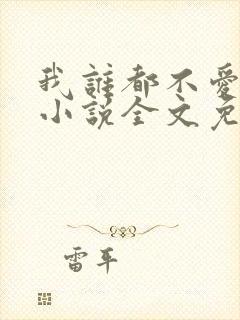 我谁都不爱
小说全文免
雷平